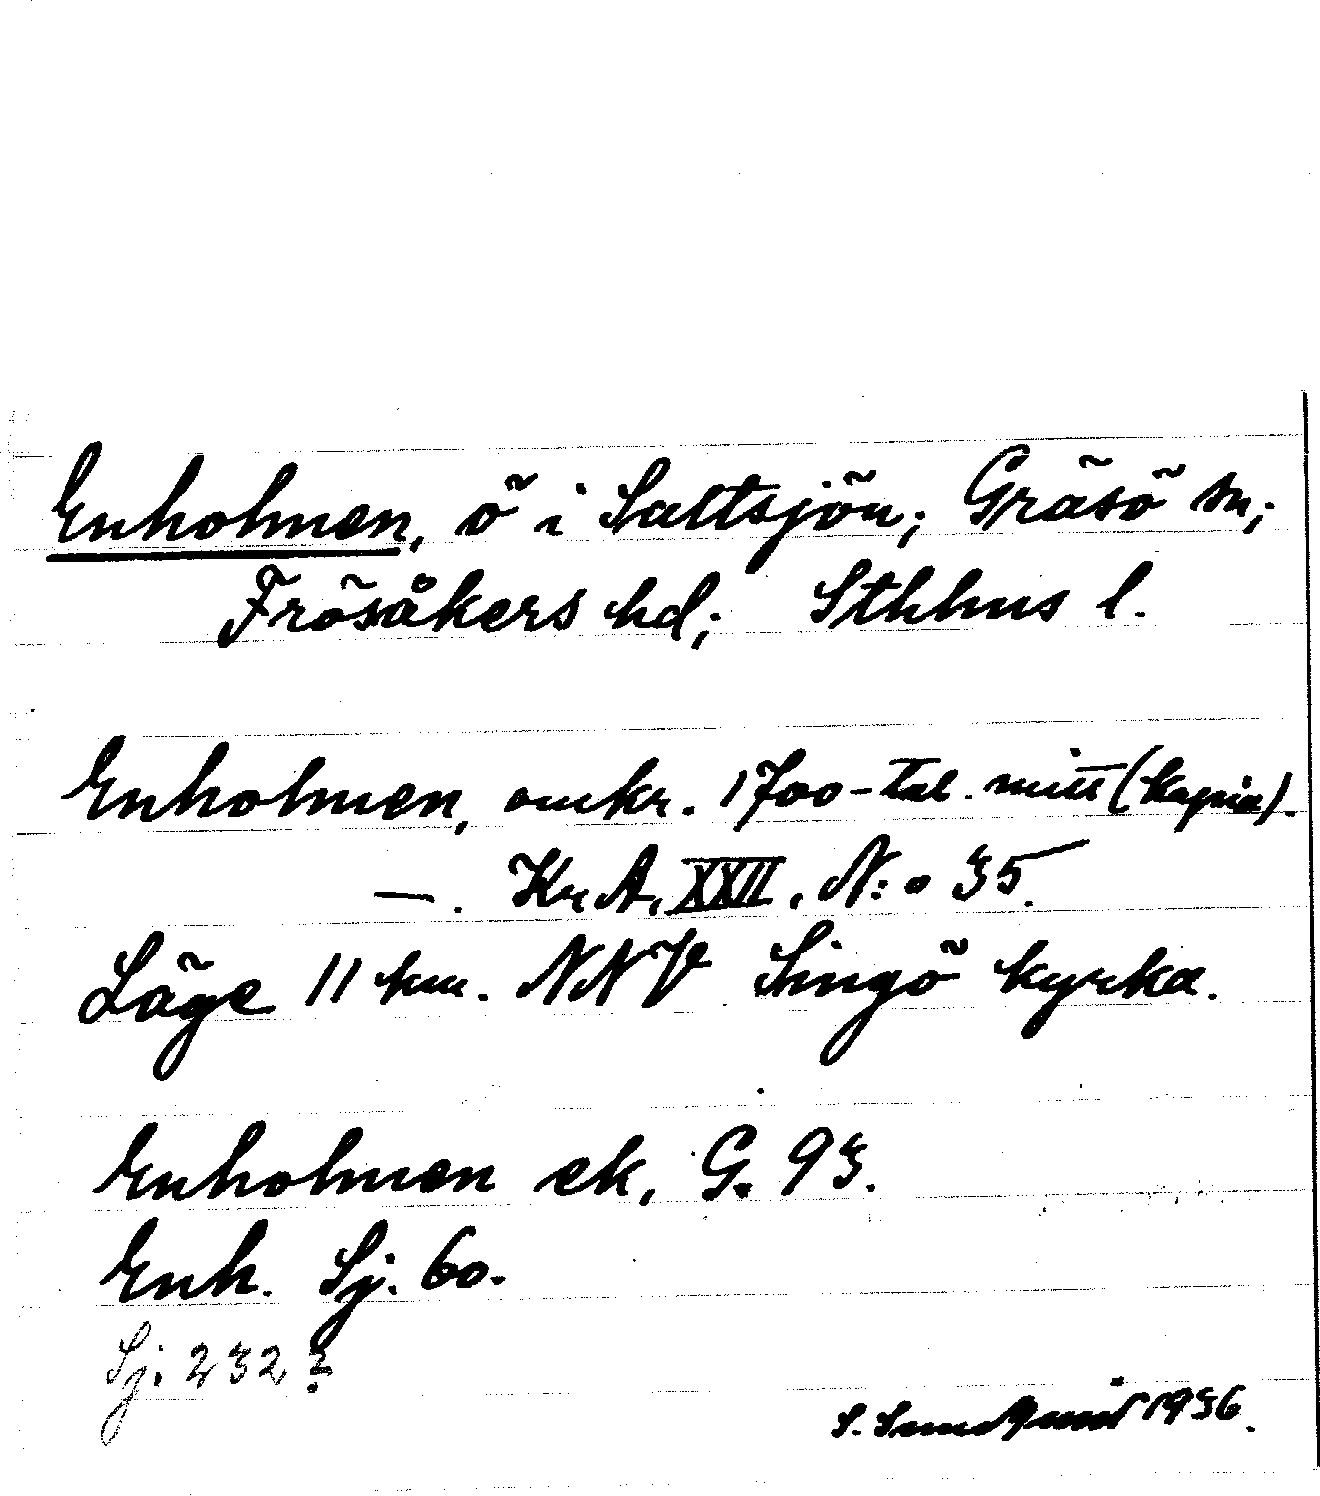 Enholmen, ö i Saltsjön; Gräsö sn;
Frösåkers hd; Sthlms l.
Enholmen, omkr. 1700-tal. mitt (kopia).
—. Kr. A. XXII, N:o 35.
Läge 11 km. NNV Singö kyrka.
Enholmen ek, G. 93.
Enh. Sj. 60.
Sj. 232?
S. Sundqvist 1936.